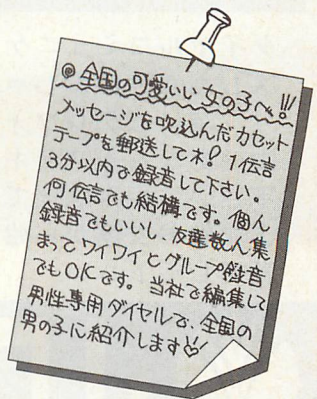 ◎全国の可愛いい女の子へ!!
メッセージを吹込んだカセット
テープを郵送してネ? 1伝言
3分以内で録音して下さい。
何伝言でも結構です。個人
録音でもいいし、友達数人集
まってワイワイとグループ録音
でもOKです。当社で編集して
男性専用ダイヤルで、全国の
男の子に紹介します